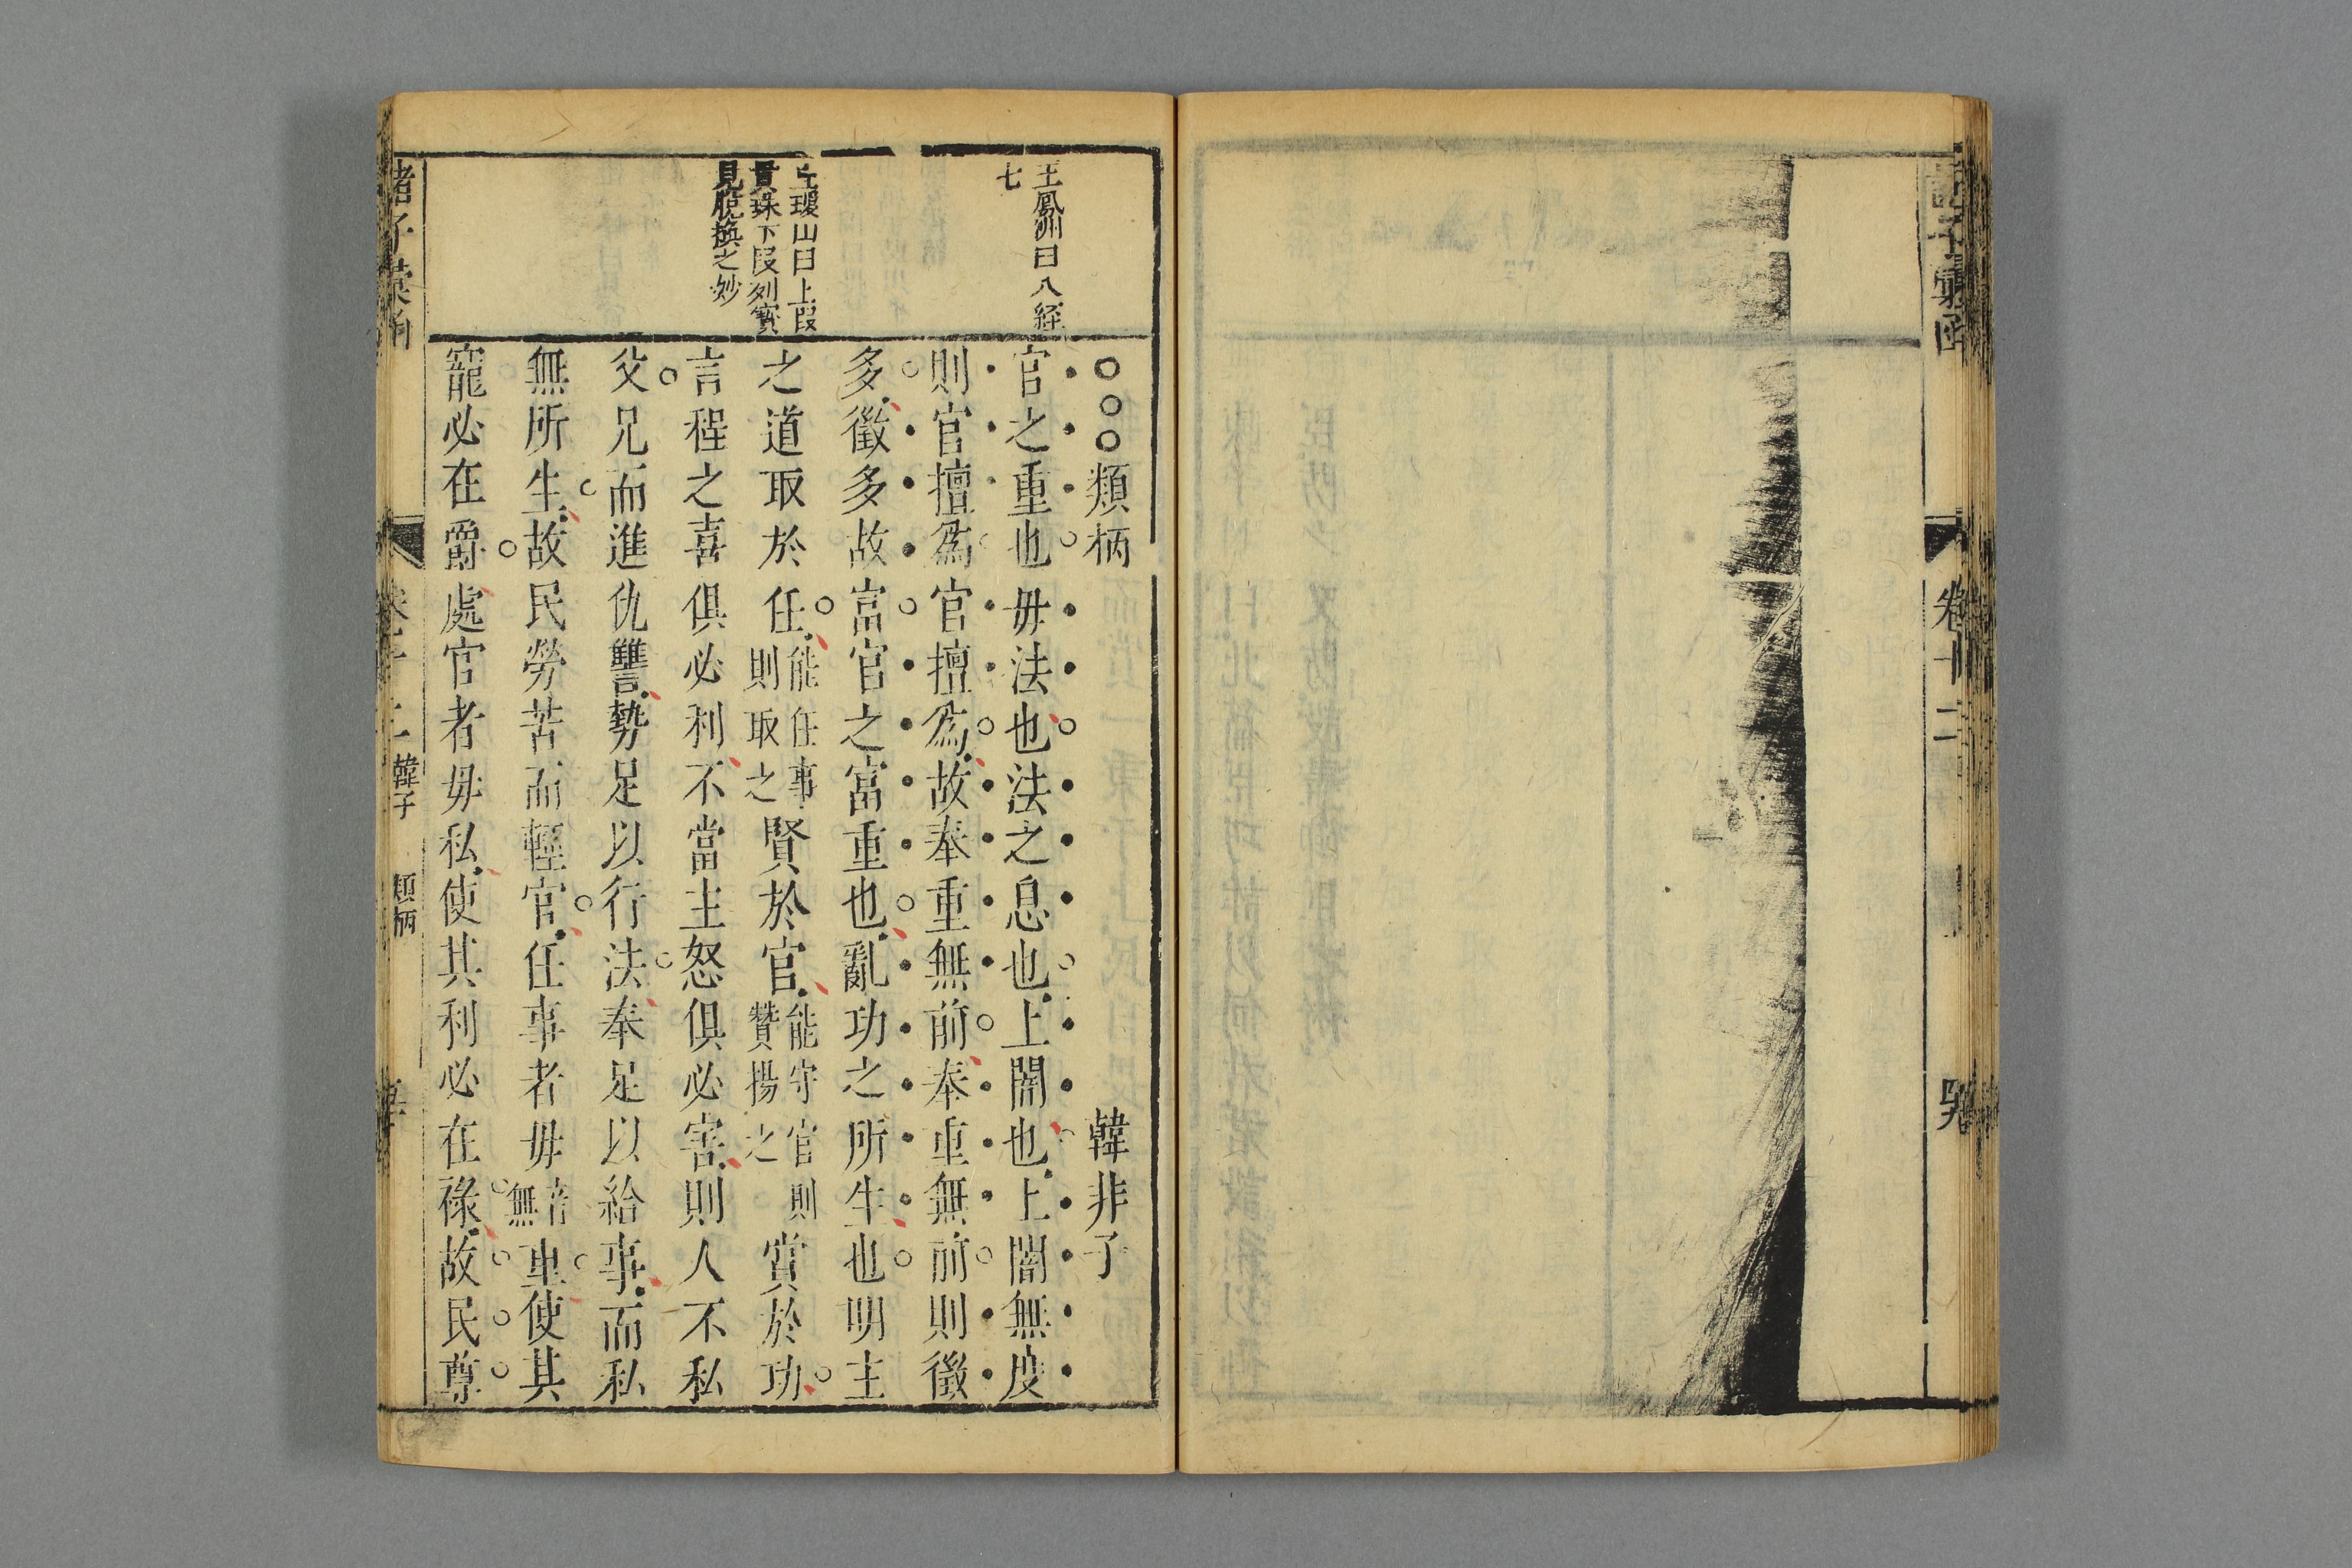 諸子彙函
卷十二
王鳳洲曰八經
七
丘瓊山曰上段
貫珠下段列寶
見脫換之妙
○○○類柄 韓非子
官之重也毋法也法之息也上闇也上闇無度
則官擅爲官擅爲故奉重無前奉重無前則徵
多徵多故富官之富重也亂功之所生也明主
之道取於任能任事則取之賢於官能守官則贊揚之賞於功
言程之喜俱必利不當主怒俱必害則人不私
父兄而進仇讐勢足以行法奉足以給事而私
無所生故民勞苦而輕官任事者毋重使其
寵必在爵處官者毋私使其利必在祿故民尊
諸子彙函
卷十二
韓子
類柄